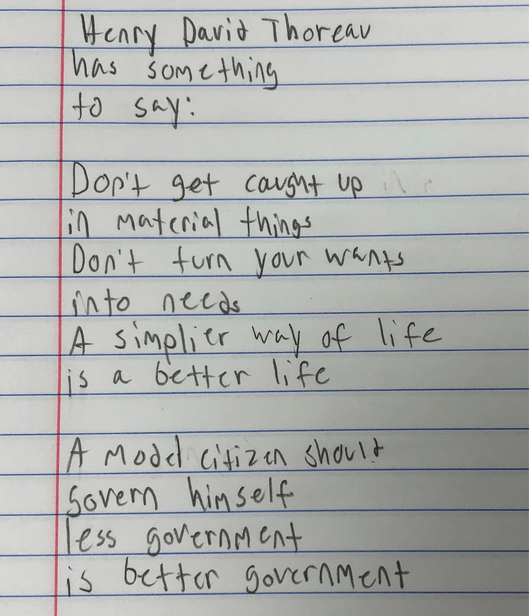 Henry David Thoreau
has something
to say:
Don't get caught up
in material things
Don't turn your wants
into needs
A simplier way of life
is a better life
A model citizen should
govern himself
less government
is better government